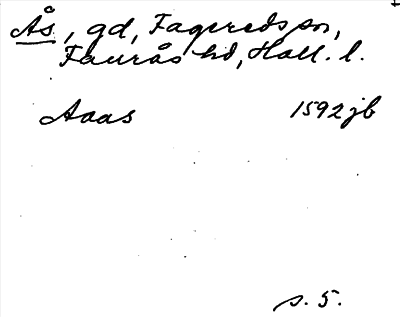 Ås, gd, Fagereds sn,
Faurås hd, Hall. l.
Aaas 1592 jb
s. 5.